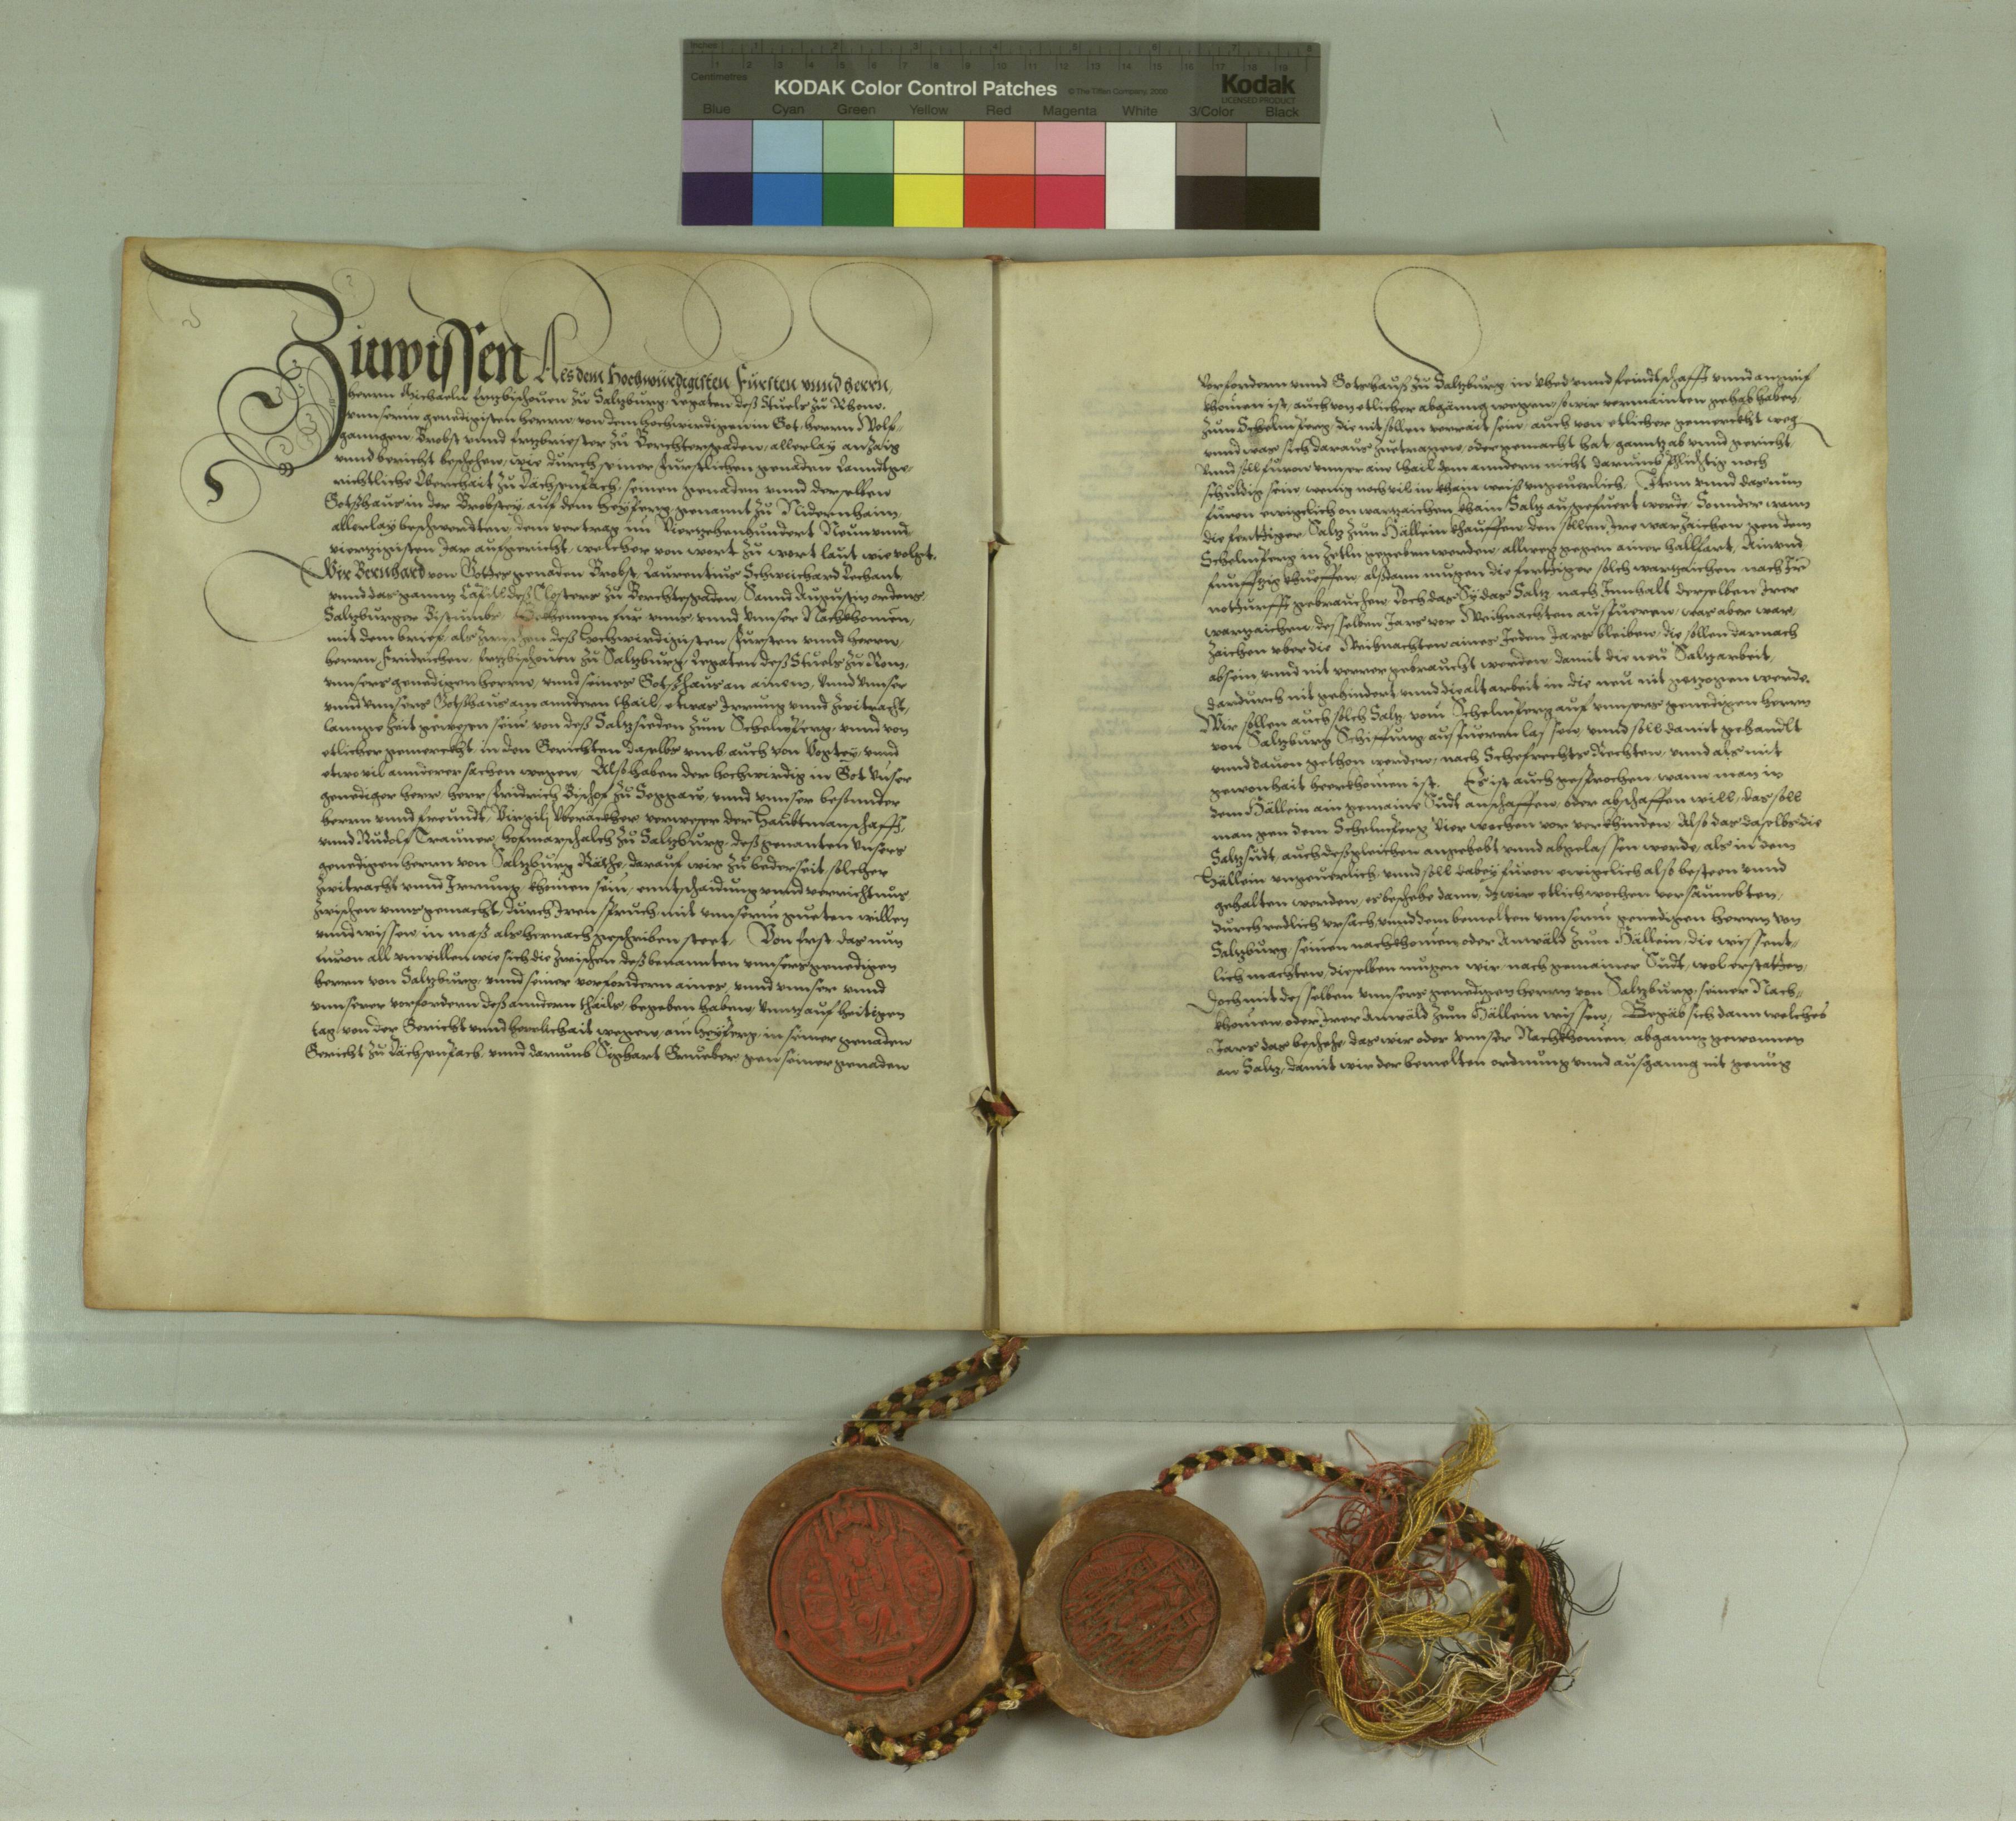 Inches 1 2 3 4 5 6 7 8
Centimetres 1 2 3 4 5 6 7 8 9 10 11 12 13 14 15 16 17 18 19
KODAK Color Control Patches © The Tiffen Company, 2000 Kodak
LICENSED PRODUCT
Blue Cyan Green Yellow Red Magenta White 3/Color Black
Zuwissen Als dem Hochwürdigisten Fürsten vnnd herrn,
herrn Michaeln Ertzbischouen zu Saltzburg, Legaten deß Stuels zu Rhom,
vnnserm genedigisten herrn, von dem hochwirdigen in Got, herrn Wolf-
ganngen Brobst vnnd Ertzbriester zu Berchtersgaden, allerlay anzaig
vnnd bericht beschehen, wie durch seiner Fürstlichen genaden Lanndtge-
richtliche Oberchait zu Lachsenfach, seinen genaden vnnd derselben
Gotßhaus in der Brobstey, auf dem Heyperg, genannt zu Nidernhaim,
allerlay beschwerdten, dem vertrag im Vierzehenhundert Neunvnnd-
vierzigisten Jar aufgericht, welcher von wort zu wort laut wie volgt.
Wir Bernhard von Gottes genaden Brobst, Laurentius Schweichard Dechant,
vnnd das gannz Capitl deß Closters zu Berchtesgaden, Sannd Augustin ordens,
Saltzburger Bistumbs, Bekhennen für vnns, vnnd vnnser Nachkhomen,
mit dem brief, als zwischen deß Hochwirdigisten Fürsten vnnd herrn,
herrn Fridrichen, Ertzbischouen zu Saltzburg, Legaten deß Stuels zu Rom,
vnnsers genedigen herrn, vnnd seines Gotßhaus an ainem, vnnd vnnser
vnnd vnnsers Gotßhaus am anndern thail, etwas Irrung vnnd zwitracht,
lannge zeit gewesen sein, von deß Saltzsieden zum Schelnperg, vnnd von
etlicher gemerckht, in den Gerichten daselbs vmb, auch von Vogtey, vnnd
etwovil annderer sachen wegen, Also haben der hochwirdig in Got vnser
genediger herr, herr Fridrich Bischof zu Seggaw, vnnd vnnser besonnder
herrn vnnd freundt, Virgilj Vberackher verweser der Haubtmanschafft,
vnnd Rudolf Trauner, hofmarschalch zu Saltzburg, deß genanten vnsers
genedigen herrn von Saltzburg Räthe, darauf wir zu bederseit, solcher
zwitracht vnnd Irrung, khomen sein, enntschaidung vnnd verrichtnus,
zwischen vnns gemacht, durch Iren spruch mit vnnserm gueten willen
vnnd wissen, in maß als hernach geschriben steet, Von Erst, das nun
füron all vnwillen wie sich die zwischen deß benannten vnnsers genedigen
herrn von Saltzburg, vnnd seiner vorfordern aines, vnnd vnnser vnnd
vnnserer vorfordern deß anndern thails, begeben haben, vnntz auf heutigen
tag, von der Gericht vnnd herrlichait wegen, am Heyperg, in seiner genaden
Gericht zu Lachsenfach, vnnd darumb Sighart Grueber, gen seiner genaden
Vorfordern vnnd Gotzhauß zu Saltzburg, in vhed vnnd feindtschafft vnnd angrif
khomen ist, auch von etlicher abgänng wegen, so wir vermainten gehabt haben,
zum Schelnperg, die nit sollen verrait sein, auch von etlicher gemerckht weg
vnnd was sich daraus zuetragen, oder gemacht hat, ganntz ab vnnd gericht,
vnnd soll füron vnnser ain thail dem anndern nicht darumb pflichtig noch
schuldig sein, wenig noch vil in khain weiß vngeuerlich, Item vnnd das nun
füron ewigclich on warzaichen khain Saltz ausgefuert werde, Sonnder wann
die Fertiger, Saltz zum Hällein khauffen, den sollen Ire warzaichen gen dem
Schelnperg in zetln gegeben werden, alweg gegen ainer hallfart, Ainvnd-
funfftzig khueffen, alßdann mugen die fertiger solch warzaichen nach Ir
notdurfft gebrauchen, Doch das Sy das Saltz nach Innhalt derselben Irer
warzaichen, des selben Jars vor Weihnachten ausfueren, was aber war-
zaichen vber die Weihnachten aines Jeden Jars bleiben, die sollen darnach
absein, vnnd nit verrer gebraucht werden, damit die neu Saltzarbeit,
dardurch nit gehindert, vnnd die alt arbeit in die neu nit getzogen werde.
Wir sollen auch solch Saltz vom Schelnperg auf vnnsers genedigen herrn
von Saltzburg Schiffung ausfueren lassen, vnnd soll damit gehandlt
vnnd dauon gethon werden, nach Schefrechts Rechten, vnnd als mit
gewonhait heerkhomen ist. Es ist auch gesprochen, wann man in
dem Hällein ain gemaine Sudt anschaffen, oder abschaffen will, das soll
man gen dem Schelnperg vier wochen vor verkhinden, Also das daselbs die
Saltzsudt, auch deßgleichen angehebt vnnd abgelassen werde, als in dem
Hällein vngeuerlich, vnnd soll dabey füron ewigclich also besteen vnnd
gehalten werden, es beschehe dann, dz wir etlich wochen versäumbten,
durch redlich vrsach, vnnd dem bemelten vnnserm genedigen herrn von
Saltzburg, seinen nachkhomen, oder Anwäld zum Hällein, die wissent-
lich machten, dieselben mugen wir, nach gemainer Sudt, wol erstatten,
Doch mit desselben vnnsers genedigen herrn von Saltzburg, seiner Nach-
khomen, oder Irer Anwäld zum Hällein wissen, Begäb sich dann welches
Jars das beschehe, das wir oder vnnser Nachkhomen, abganng gewonnen
an Saltz, damit wir der bemelten ordnung vnnd ausganng nit genug